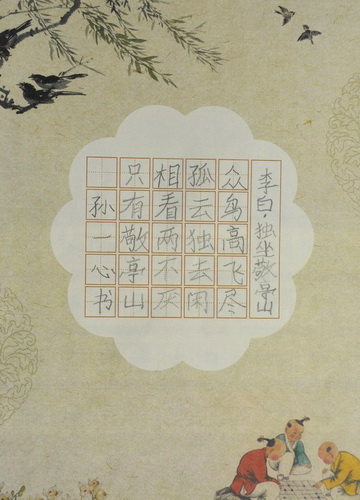 李白·独坐敬亭山
众鸟高飞尽
孤云独去闲
相看两不厌
只有敬亭山
孙一心书